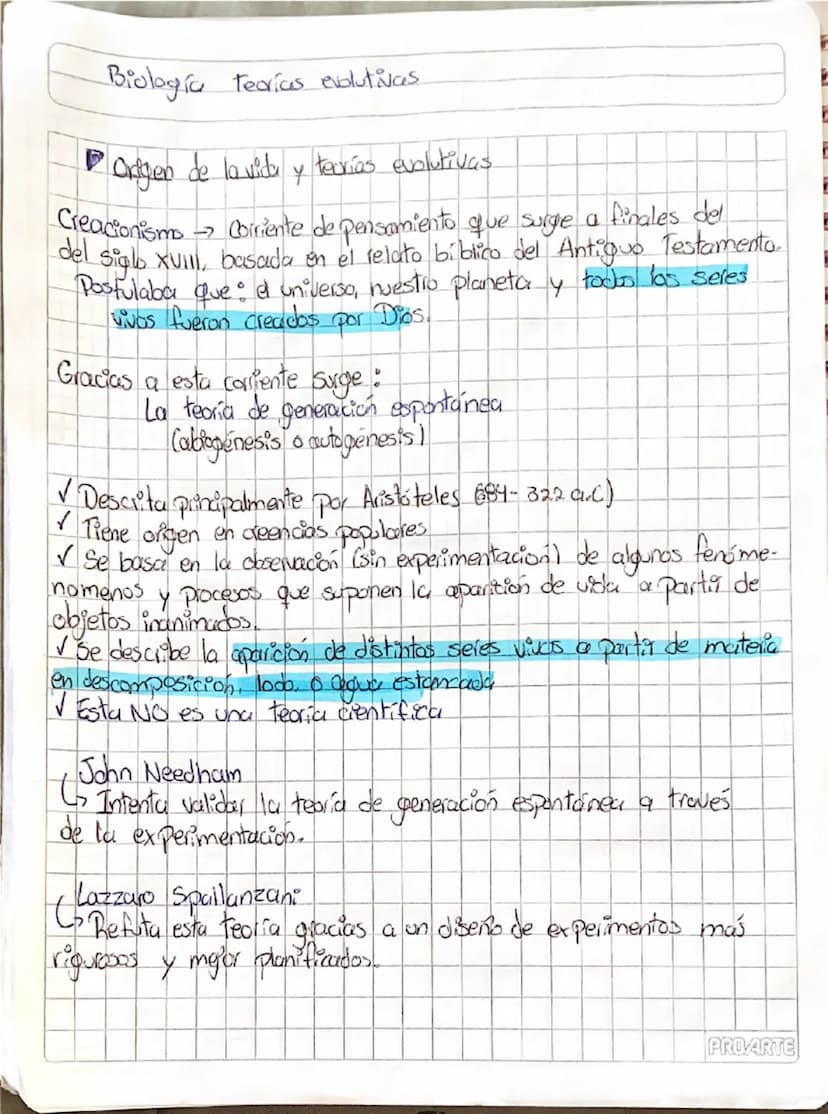 Biología teorías evolutivas
Origen de la vida y teorías evolutivas
Creacionismo → Corriente de pensamiento que surge a finales del
del siglo XVIII, basada en el relato bíblico del Antiguo Testamento.
Postulaba que: el universo, nuestro planeta y todos los seres
vivos fueron creados por Dios.
Gracias a esta corriente surge:
La teoría de generación espontánea
(abiogénesis o autogénesis)
✓ Descrita principalmente por Aristóteles (384-322 a.C)
✓ Tiene origen en creencias populares
✓ Se basa en la observación (sin experimentación) de algunos fenóme-
nomenos y procesos que suponen la aparition de vida a partir de
objetos inanimados.
✓ Se describe la aparición de distintos seres vivos a partir de materia
en descomposición, lodo o agua estancada
✓ Esta NO es una teoría científica
John Needham
↳ Intenta validar la teoría de generación espontánea a través
de la experimentación.
Lazzaro Spallanzani
↳ Refuta esta teoría gracias a un diseño de experimentos más
rigurosos y mejor planificados.
PROARTE